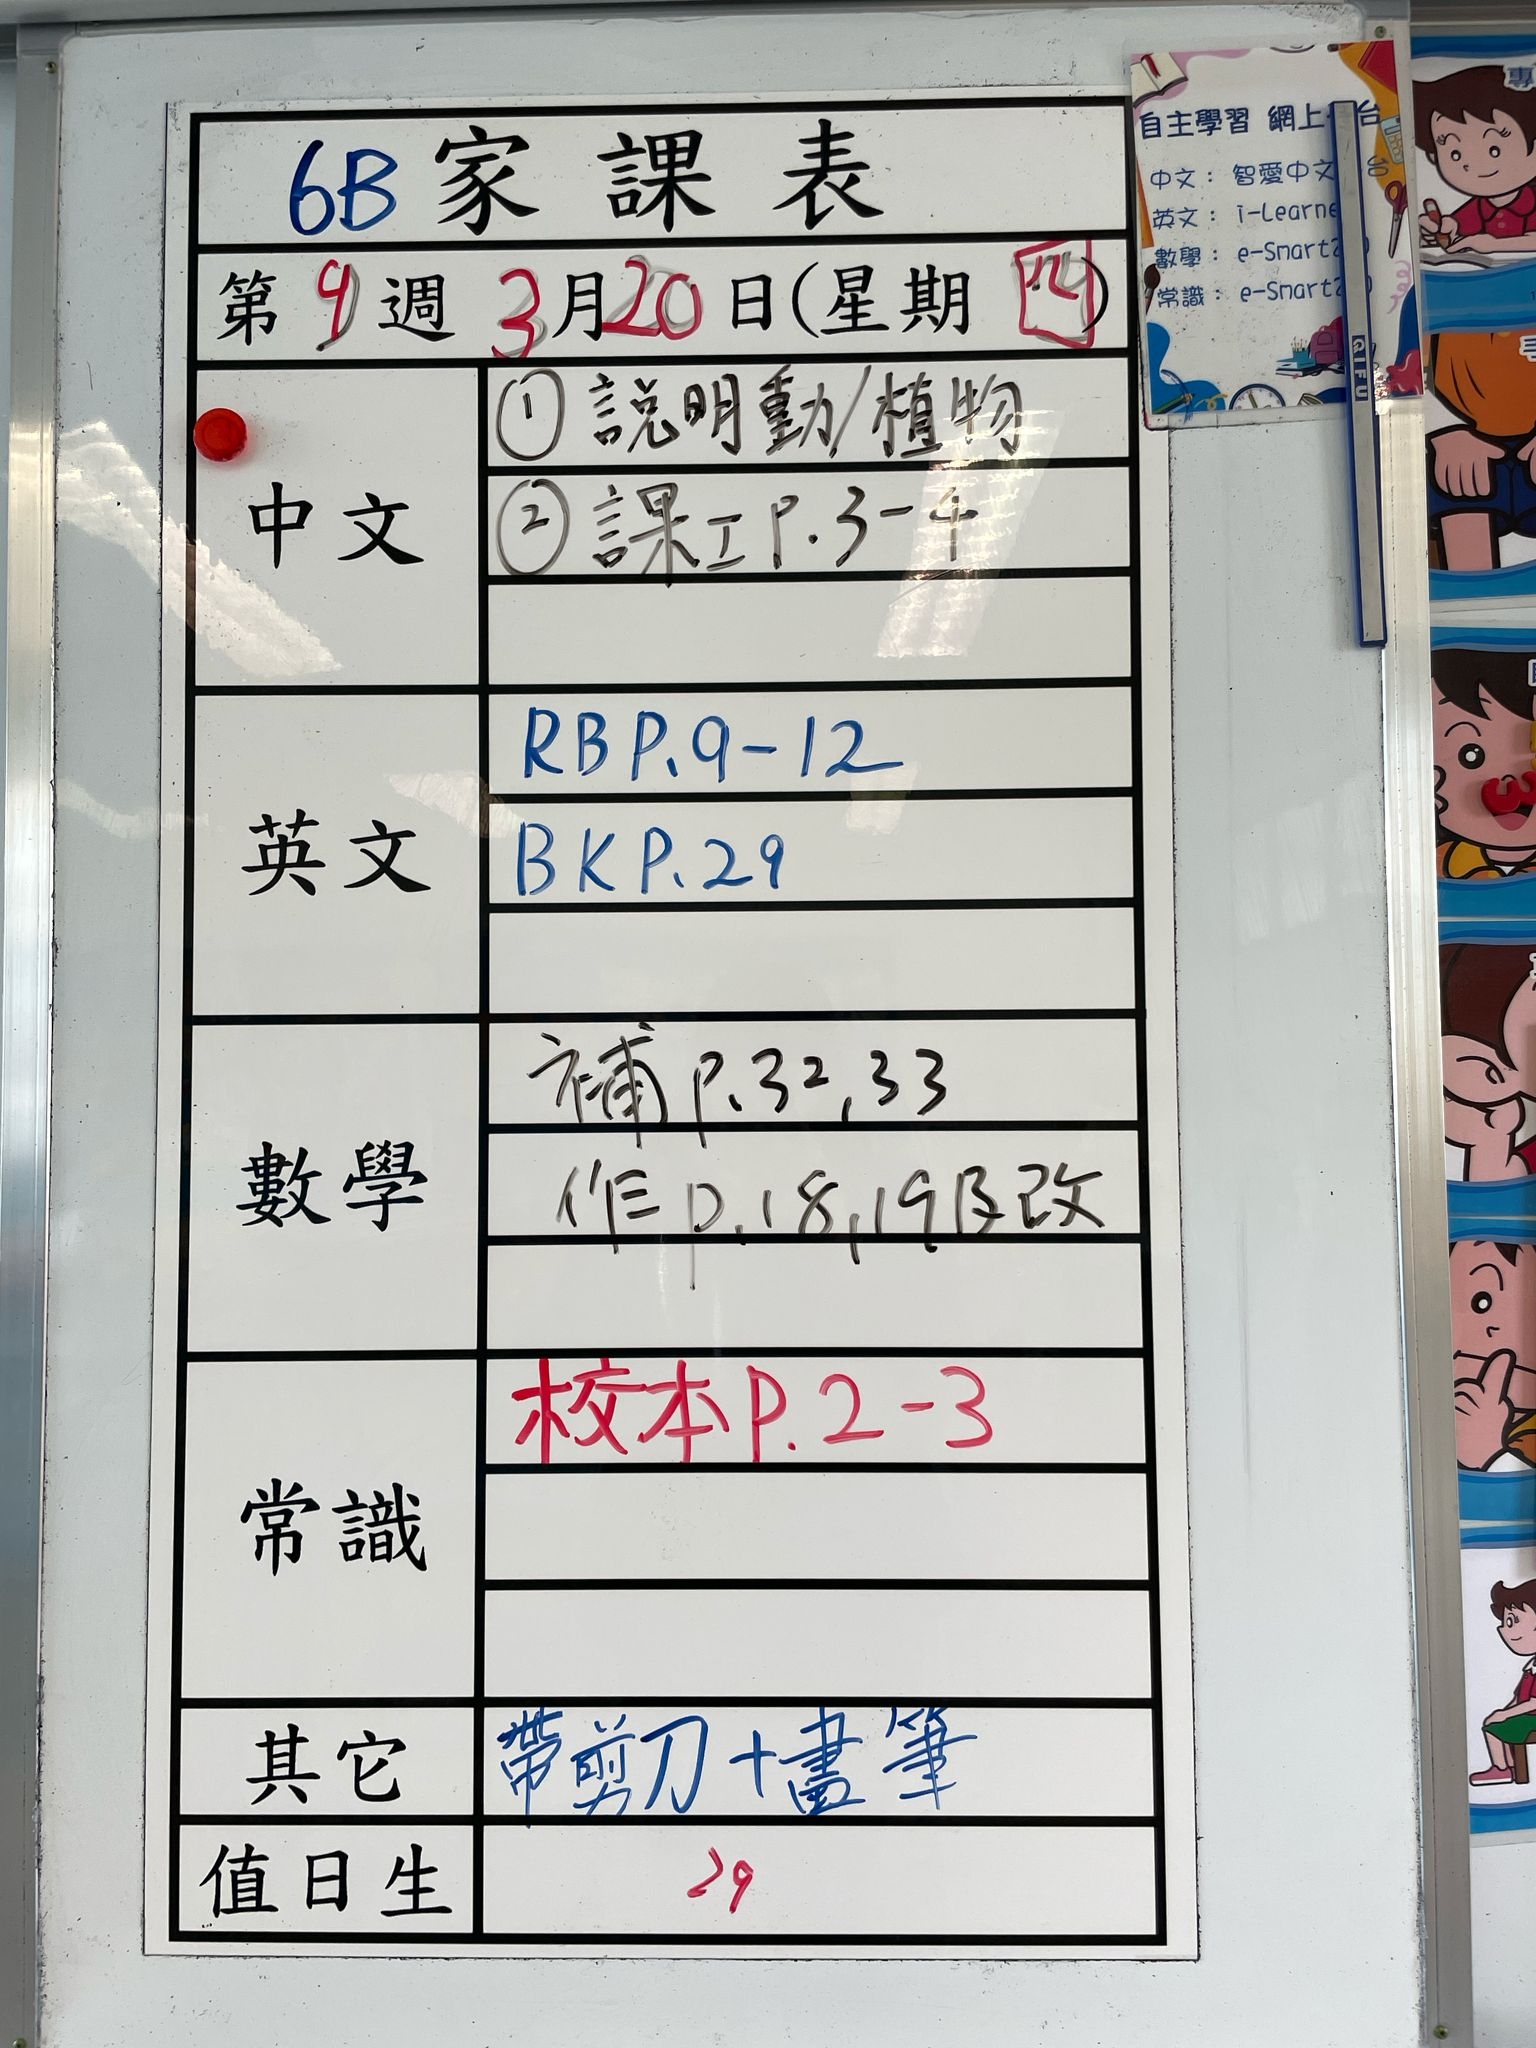 6B 家課表
第 9 週 3月20日(星期四)
中文
①說明動/植物
②課工P.3-4
英文
RB P.9-12
BK P.29
數學
補 P.32,33
作 p.18,19及改
常識
校本P.2-3
其它
帶剪刀+畫筆
值日生
29
自主學習 網上
中文：智愛中文
英文：i-Learne
數學：e-Smart
常識：e-Smart
QIFU